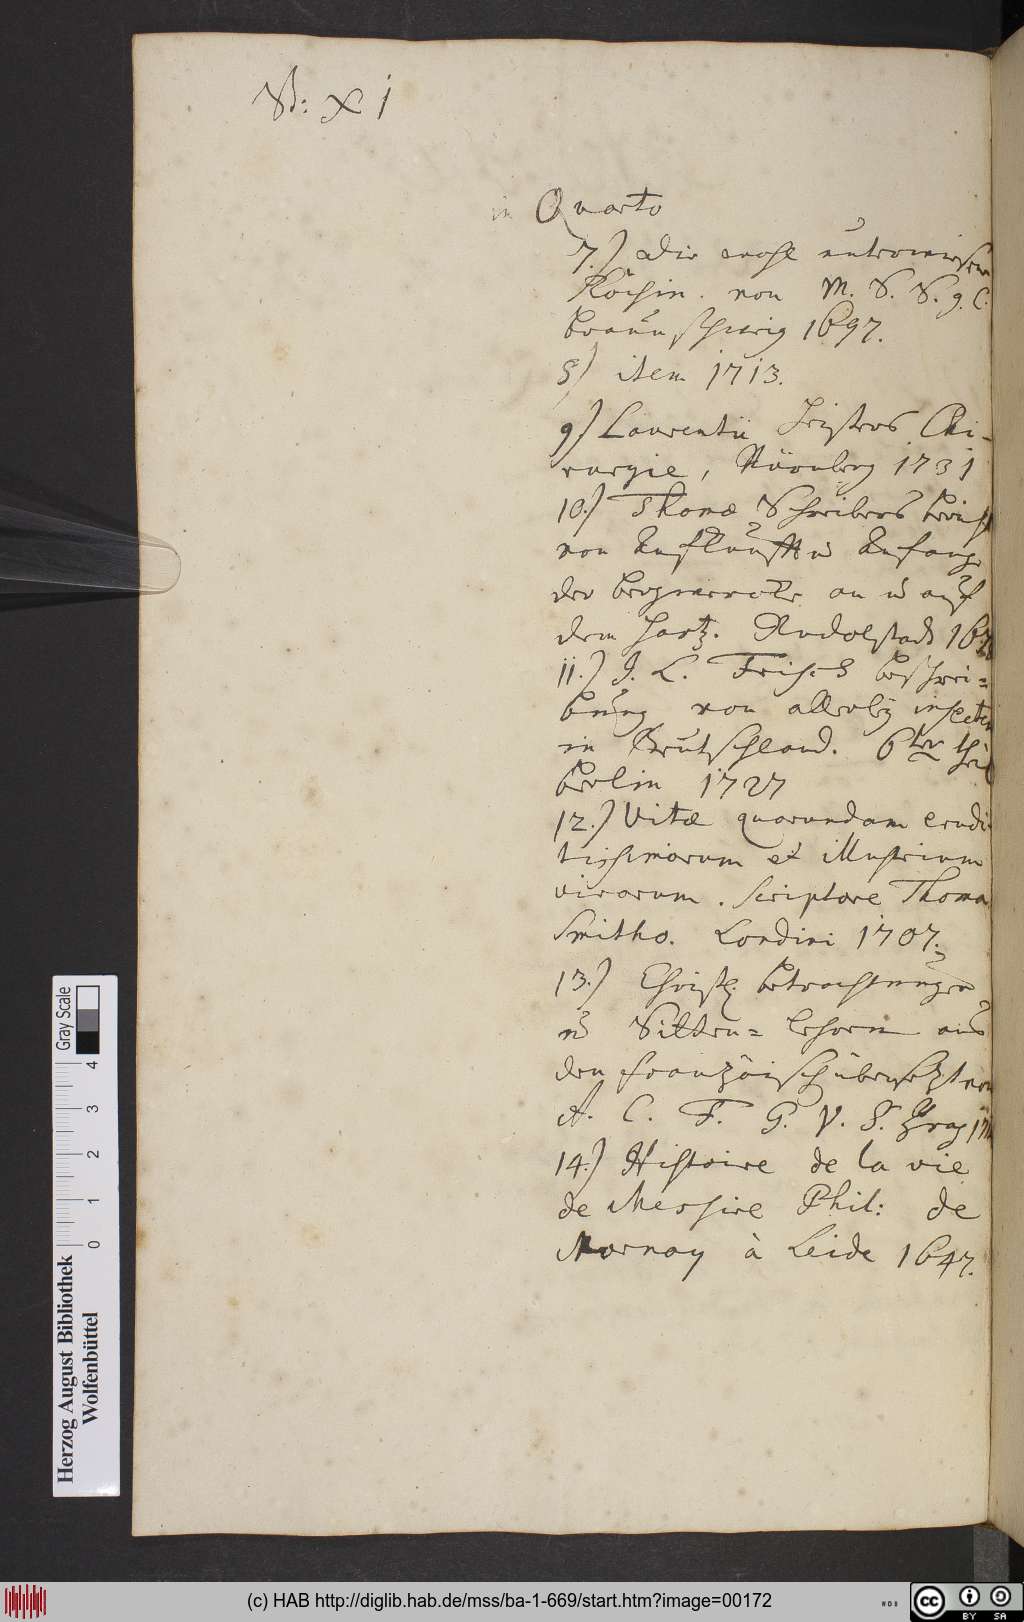 St: X j
in Quarto
7.) die wohl unterwiesene
Köchin. von M. S. S. g. C.
Braunschweig 1697.
8) item 1713.
9) Laurentii Heisters Chi-
rurgie, Nürnberg 1731
10.) Thomæ Schreibers Bericht
von Aufkunfft u Anfange
der Bergwercke an u auf
dem Hartz. Rudolstadt 167
11.) J. L. Frisch Beschrei=
bung von allerley insecten
in Teutschland. 6ter theil
Berlin 1727
12.) Vitæ quorundam erudi
tissimorum et illustrium
virorum. Scriptore Thoma
Smitho. Londini 1707.
13.) Christl. Betrachtungen
u Sitten= Lehren aus
den französisch übersetzt von
A. C. F. G. V. S. 17
14.) Histoire de la vie
de Messire Phil: de
Mornay à Leide 1647.
Gray Scale
0 1 2 3 4
Herzog August Bibliothek
Wolfenbüttel
(c) HAB http://diglib.hab.de/mss/ba-1-669/start.htm?image=00172
cc BY SA